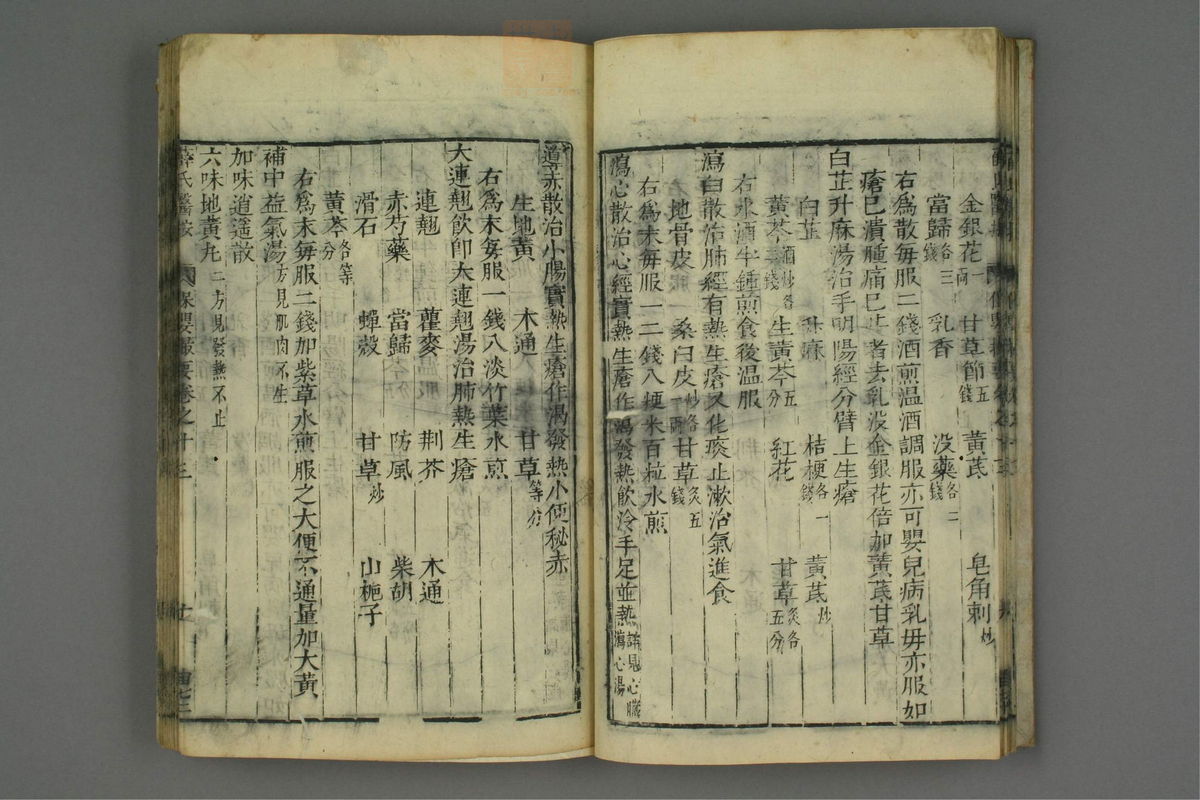 金銀花一兩 甘草節五錢 黃芪 皂角刺炒
當歸各三錢 乳香 没藥各二錢
右爲散每服二錢酒煎温酒調服亦可嬰兒病乳母亦服如
瘡已潰腫痛已止者去乳没金銀花倍加黃芪甘草
白芷升麻湯治手明陽經分臂上生瘡
白芷 升麻 桔梗各一錢 黃芪炒
黃芩酒炒各二錢 生黃芩五分 紅花 甘草炙各五分
右水酒半鍾煎食後温服
瀉白散治肺經有熱生瘡又化痰止漱治氣進食
地骨皮 桑白皮炒各一兩 甘草炙五錢
右爲末每服一二錢入粳米百粒水煎
瀉心散治心經實熱生瘡作渴發熱飲冷手足並熱詳見心臟瀉心湯
導赤散治小腸實熱生瘡作渴發熱小便秘赤
生地黃 木通 甘草等分
右爲末每服一錢入淡竹葉水煎
大連翹飲卽大連翹湯治肺熱生瘡
連翹 瞿麥 荆芥 木通
赤芍藥 當歸 防風 柴胡
滑石 蟬殼 甘草炒 山梔子
黃芩各等分
右爲末每服二錢加紫草水煎服之大便不通量加大黃
補中益氣湯方見肌肉不生
加味逍遥散
六味地黃丸二方見發熱不止
薛氏醫按 保嬰撮要卷之十三 七